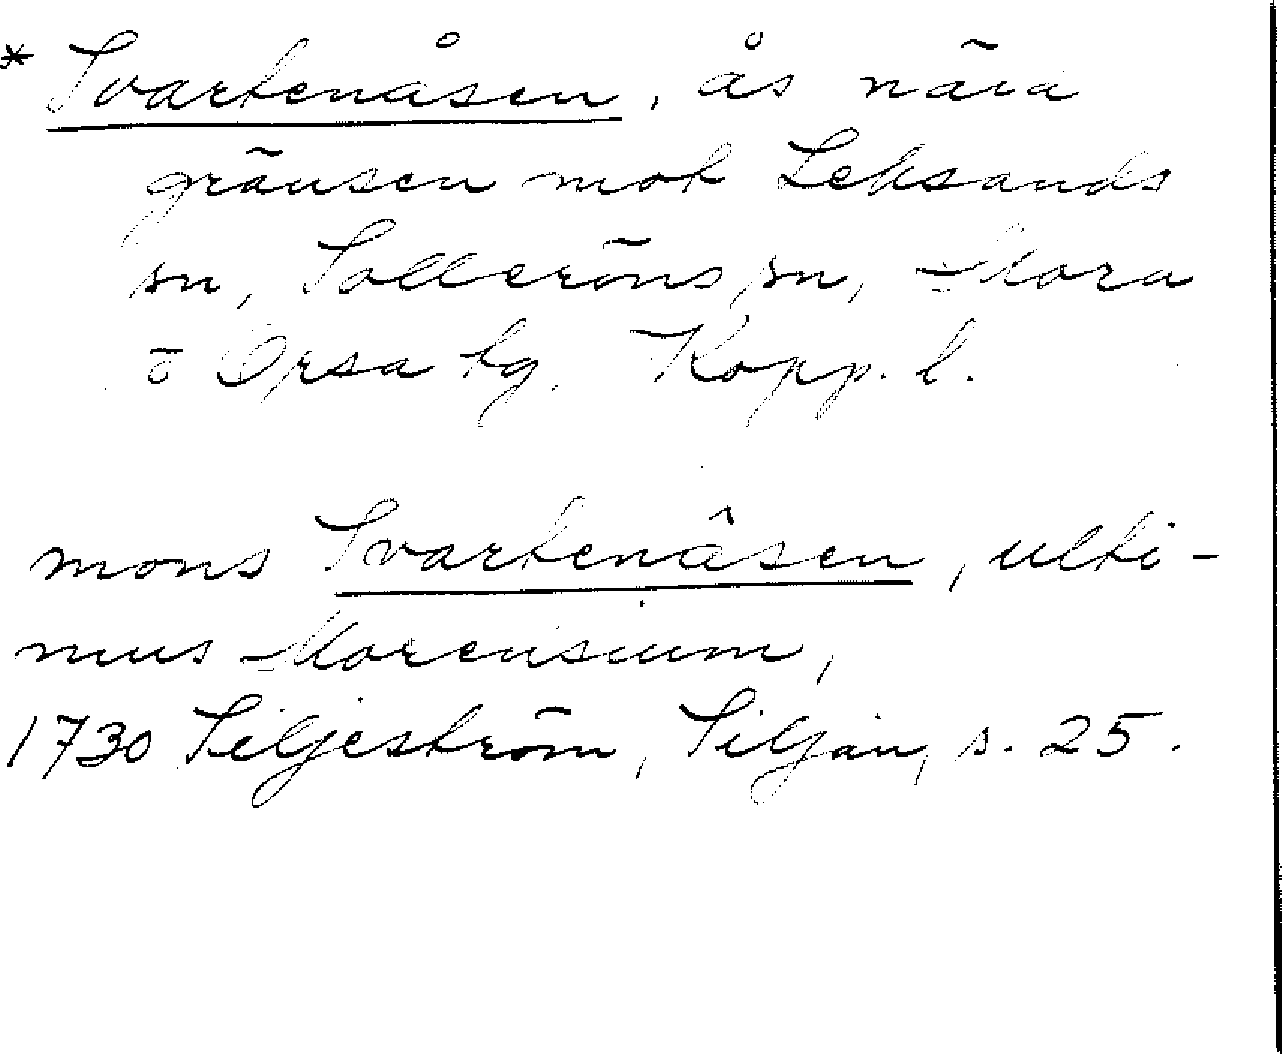 * Svartenåsen, ås nära
gränsen mot Leksands
sn, Solleröns sn, Mora
o Orsa tg. Kopp. l.
mons Svartenâsen, ulti-
mus Morensium,
1730 Siljeström, Siljan, s. 25.